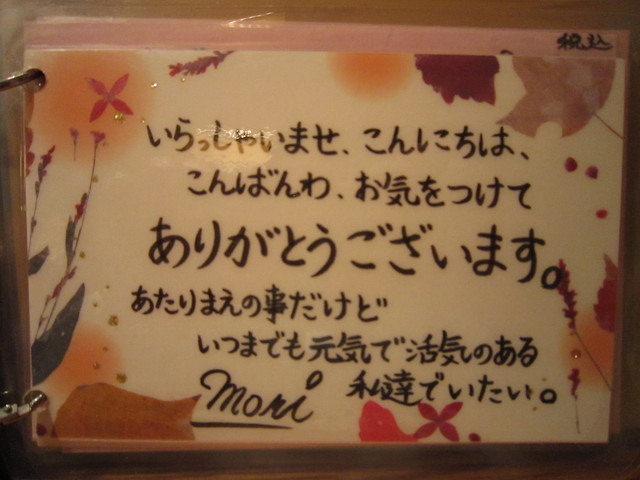 税込
いらっしゃいませ、こんにちは、
こんばんわ、お気をつけて
ありがとうございます。
あたりまえの事だけど
いつまでも元気で活気のある
私達でいたい。
mori